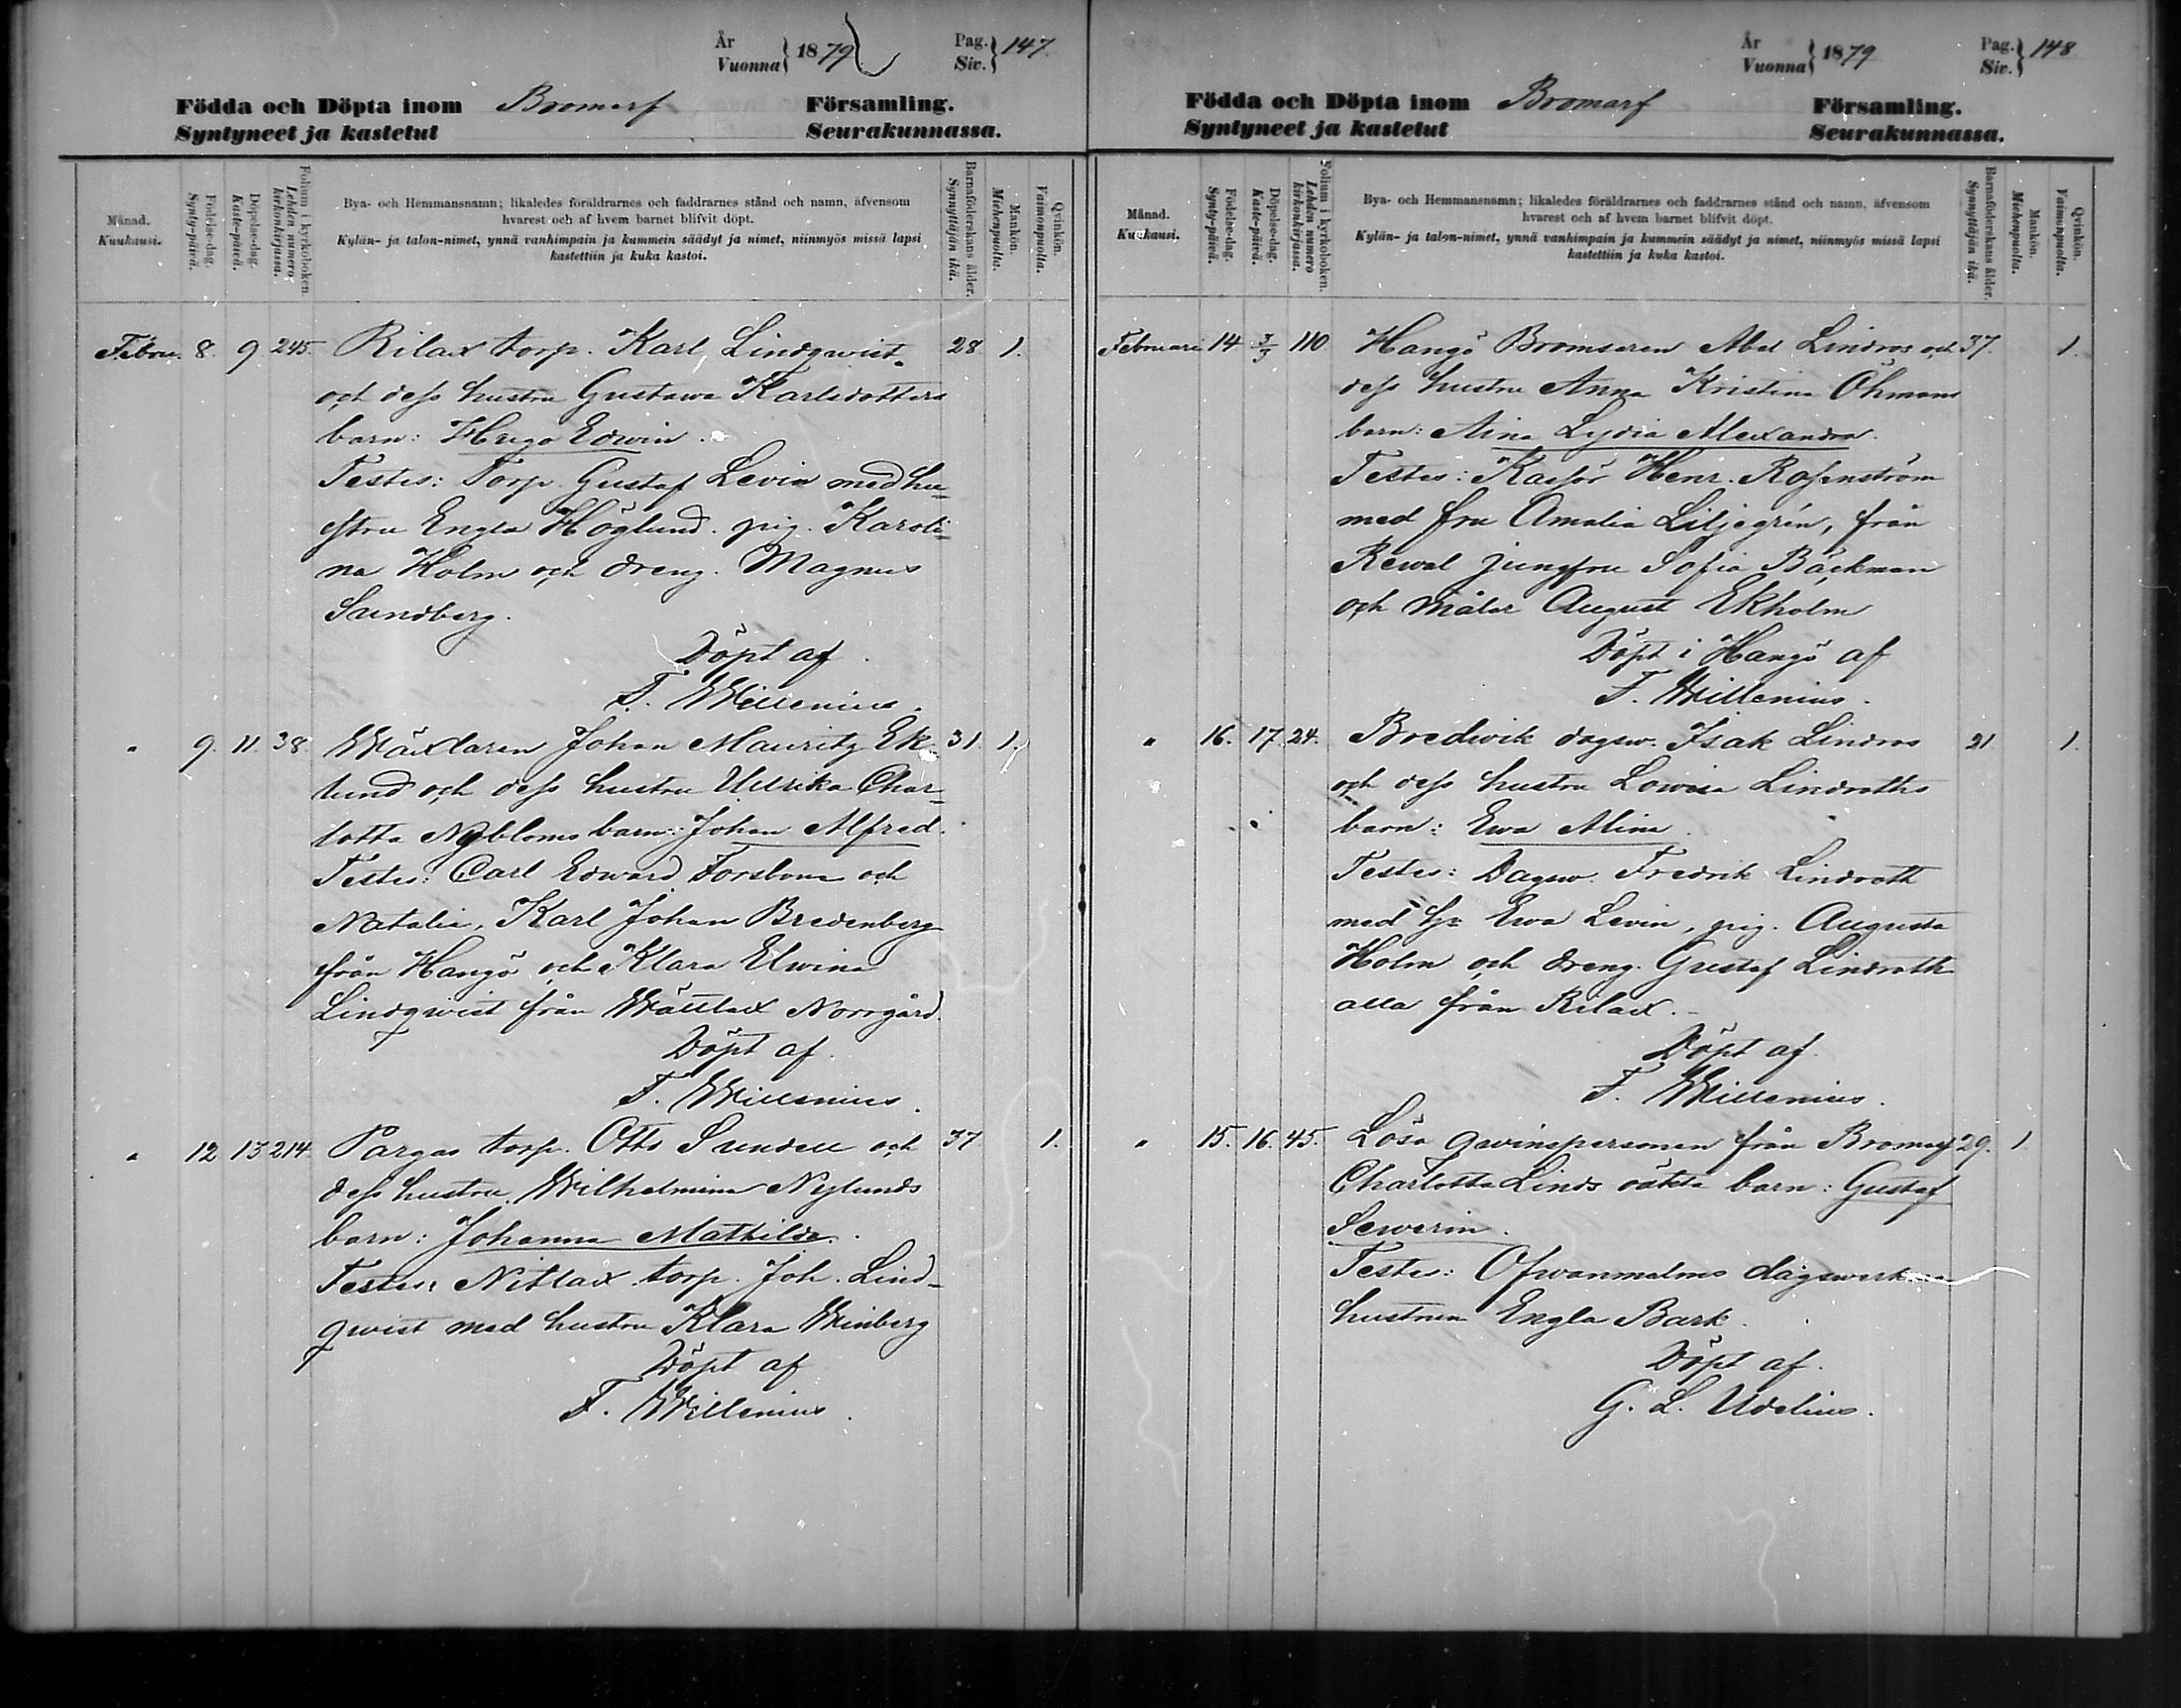 År
Vuonna } 1879
Pag.
Siv. } 147.
Födda och Döpta inom Bromarf Församling.
Syntyneet ja kastetut Seurakunnassa.
Månad.
Kuukausi.
Födelse-dag.
Synty-päivä.
Döpelse-dag.
Kaste-päivä.
Folium i kyrkoboken.
Lehden numero kirkonkirjassa.
Bya- och Hemmansnamn; likaledes föräldrarnes och faddrarnes stånd och namn, äfvensom
hvarest och af hvem barnet blifvit döpt.
Kylän- ja talon-nimet, ynnä vanhimpain ja kummein säädyt ja nimet, niinmyös missä lapsi
kastettiin ja kuka kastoi.
Barnaföderskans ålder.
Synnyttäjän ikä.
Mankön.
Miehenpuolta.
Qvinkön.
Vaimonpuolta.
Febru. 8. 9 245. Rilax torp. Karl Lindqwist 28. 1.
och dess hustru Gustawa Karlsdotters
barn: Hugo Edwin.
Testes: Torp. Gustaf Levin med hu-
stru Engla Höglund. pig. Karoli-
na Holm och dreng. Magnus
Sundberg.
Döpt af
F. Willenius.
" 9. 11. 38. Wäxlaren Johan Mauritz Ek- 31. 1.
lund och dess hustru Ulrika Char-
lotta Nybloms barn: Johan Alfred.
Testes: Carl Edward Forsbom och
Natalia, Karl Johan Bredenberg
från Hangö och Klara Elwina
Lindqwist från Wättlax Norrgård.
Döpt af
F. Willenius.
" 12 13 214. Pargas torp. Otto Sundell och 37 1.
dess hustru Wilhelmina Nylunds
barn: Johanna Mathilda.
Testes: Nitlax torp. Joh. Lind-
qwist med hustru Klara Winberg
Döpt af
F. Willenius.
År
Vuonna } 1879
Pag.
Siv. } 148
Födda och Döpta inom Bromarf Församling.
Syntyneet ja kastetut Seurakunnassa.
Månad.
Kuukausi.
Födelse-dag.
Synty-päivä.
Döpelse-dag.
Kaste-päivä.
Folium i kyrkoboken.
Lehden numero kirkonkirjassa.
Bya- och Hemmansnamn; likaledes föräldrarnes och faddrarnes stånd och namn, äfvensom
hvarest och af hvem barnet blifvit döpt.
Kylän- ja talon-nimet, ynnä vanhimpain ja kummein säädyt ja nimet, niinmyös missä lapsi
kastettiin ja kuka kastoi.
Barnaföderskans ålder.
Synnyttäjän ikä.
Mankön.
Miehenpuolta.
Qvinkön.
Vaimonpuolta.
Februari 14 110 Hangö Bromsaren Abel Lindros och 37. 1.
dess hustru Anna Kristina Öhmans
barn: Aina Lydia Alexandra.
Testes: Kassör Henr. Rosenström
med fru Amalia Liljegrén, från
Rewal jungfru Sofia Bäckman
och målar August Ekholm
Döpt i Hangö af
F. Willenius.
" 16. 17. 24. Bredwik dagsw. Isak Lindros 21 1.
och dess hustru Lowisa Lindroths
barn: Ewa Alina
Testes: Dagsw. Fredrik Lindroth
med h. Ewa Levin, pig. Augusta
Holm och dreng. Gustaf Lindroth
alla från Rilax.
Döpt af
F. Willenius.
" 15. 16. 45. Lösa qwinspersonen från Bromarf 29. 1.
Charlotta Linds oäkta barn: Gustaf
Sewerin.
Testes: Ofvanmalms
hustrun Engla Bark.
Döpt af
G. L. Udelius.